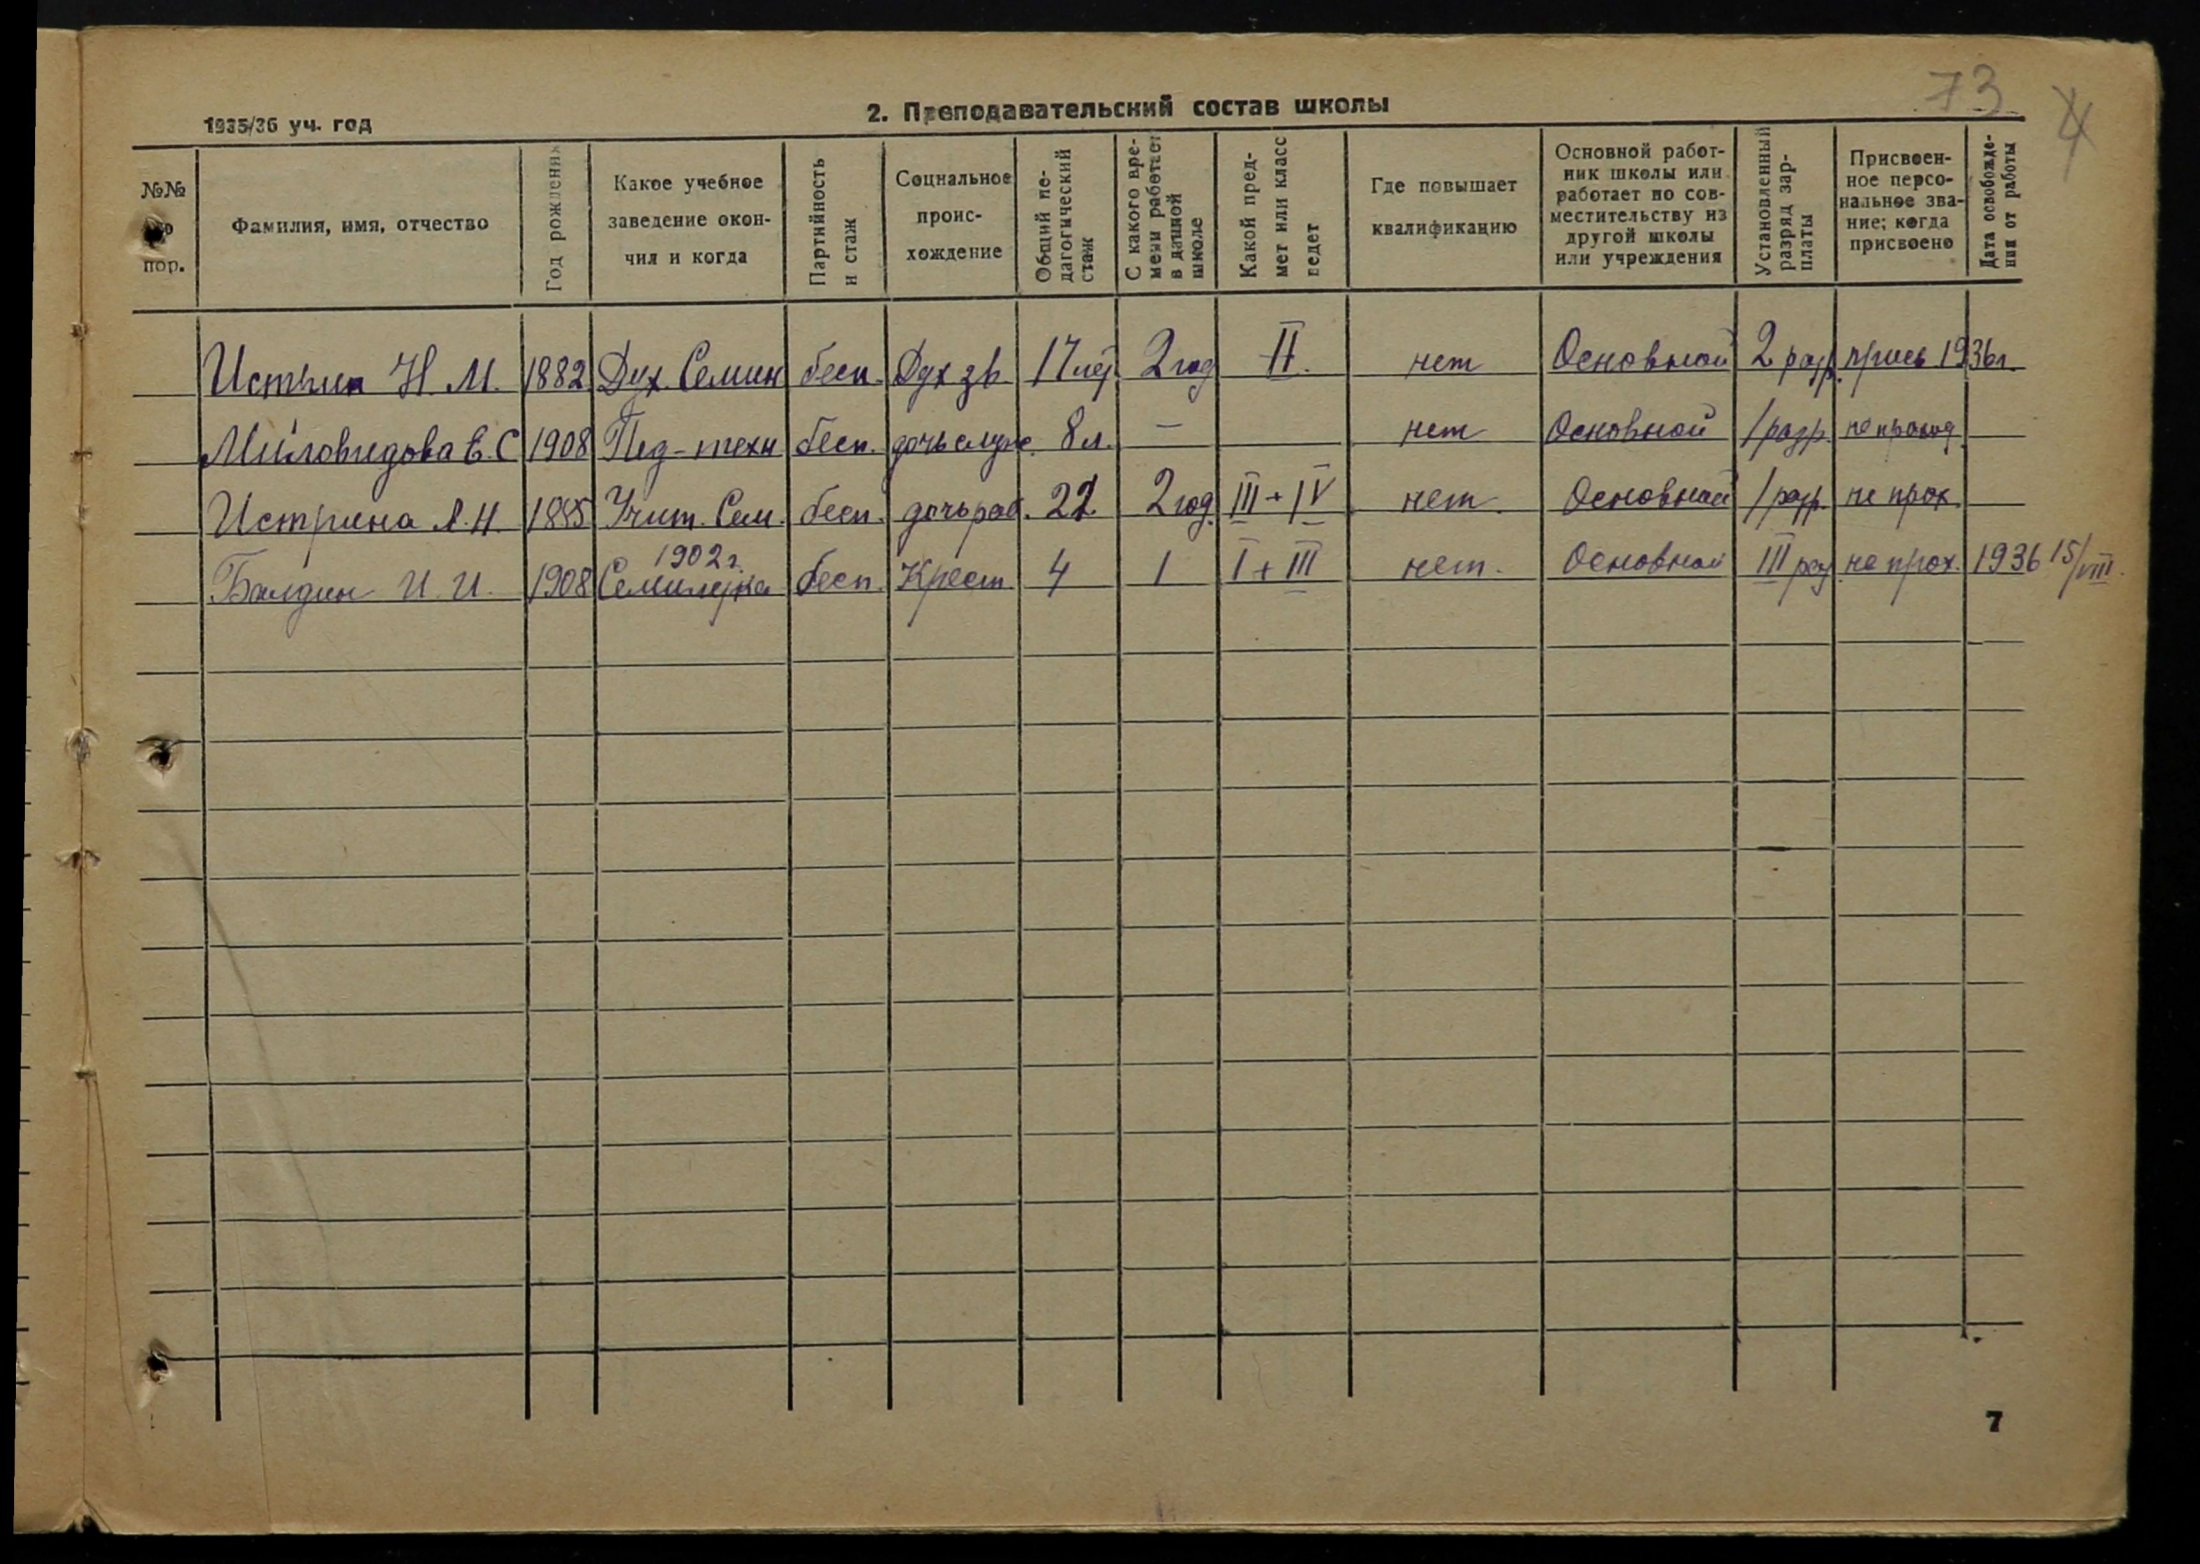 73
4
1935/36 уч. год
2. Преподавательский состав школы
№№ по пор.
Фамилия, имя, отчество
Год рождения
Какое учебное заведение окончил и когда
Партийность и стаж
Социальное происхождение
Общий педагогический стаж
С какого времени работает в данной школе
Какой предмет или класс ведет
Где повышает квалификацию
Основной работник школы или работает по совместительству из другой школы или учреждения
Установленный разряд зарплаты
Присвоенное персональное звание; когда присвоено
Дата освобождения от работы
Истрин Н. М. 1882 Дух. Семин бесп. Дух зв. 17 лет 2 год II. нет Основной 2 разр. присв 1936 г.
Миловидова Е. С 1908 Пед-техн бесп. дочь служ. 8 л. — нет Основной 1 разр. не проход
Истрина Л. Н. 1885 Учит. Сем. 1902 г. бесп. дочь раб. 22. 2 год. III + IV нет. Основной 1 разр. не прох.
Балдин И. И. 1908 Семилетка бесп. Крест. 4 1 I + III нет. Основной III раз не прох. 1936 15/VIII.
7